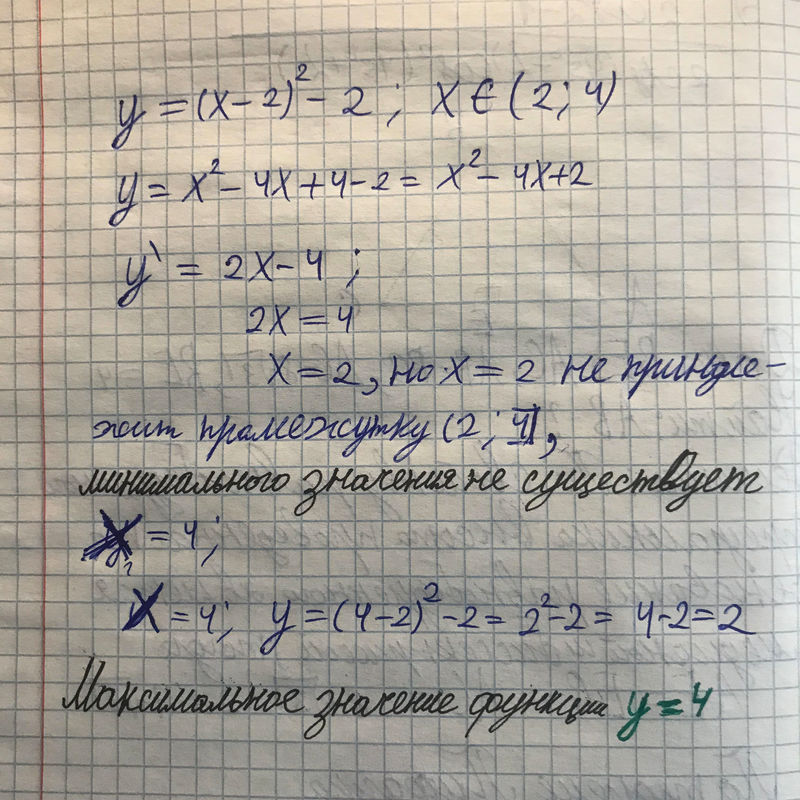 y = (x-2)² - 2 ; x ∈ (2; 4)
y = x² - 4x + 4 - 2 = x² - 4x + 2
y` = 2x - 4 ;
2x = 4
x = 2, но x = 2 не принадле-
жит промежутку (2; 4],
минимального значения не существует
= 4;
x = 4; y = (4-2)² - 2 = 2² - 2 = 4 - 2 = 2
Максимальное значение функции y = 4